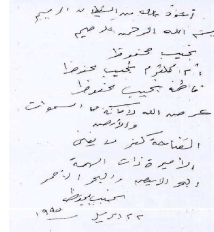 أعوذ بالله من الشيطان الرجيم
بسم الله الرحمن الرحيم
نجيب محفوظ
أم كلثوم نجيب محفوظ
فاطمة نجيب محفوظ
عرض الله الأمانة السموات
والأرض
القناعة كنز لا يفنى
الأميرة ذات الهمة
البحر الأبيض والبحر الأحمر
نجيب محفوظ